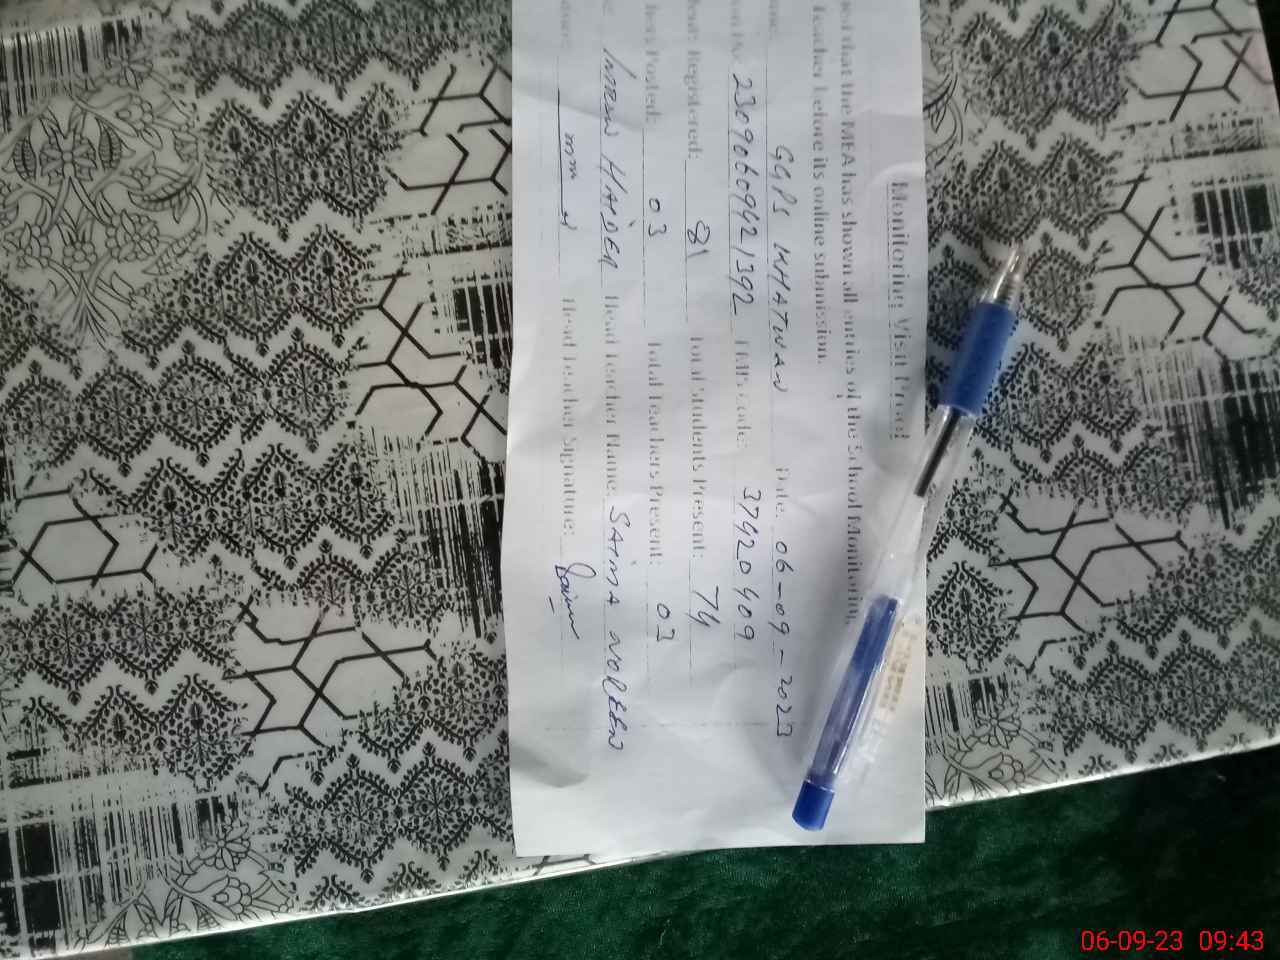 Monitoring Visit Proof
that the MEA has shown all entries of the School Monitoring
Teacher before its online submission.
GGPS KHATWAN Date: 06-09-2023
230906099421392 EMIS code: 37420409
Registered: 81 Total Students Present: 74
Posted: 03 Total Teachers Present: 03
HAIDER Head Teacher Name: SAIMA NOREEN
Head Teacher Signature: Saima
06-09-23 09:43